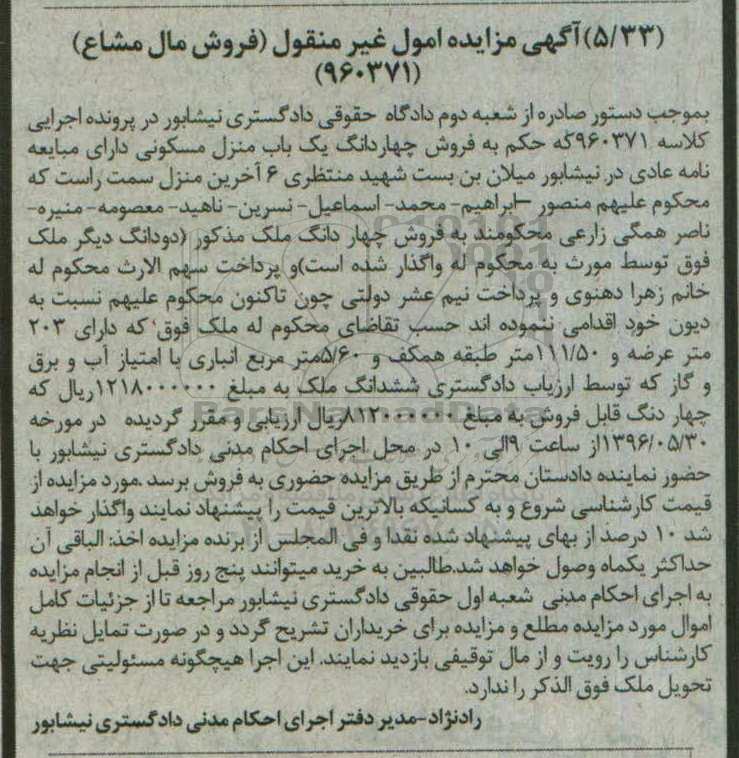 (۵/۳۳)آگهی مزایده امول غیر منقول (فروش مال مشاع)
(۹۶۰۳۷۱)
بموجب دستور صادره از شعبه دوم دادگاه حقوقی دادگستری نیشابور در پرونده اجرایی
کلاسه ۹۶۰۳۷۱که حکم به فروش چهاردانگ یک باب منزل مسکونی دارای مبایعه
نامه عادی در نیشابور میلان بن بست شهید منتظری ۶ آخرین منزل سمت راست که
محکوم علیهم منصور –ابراهیم- محمد- اسماعیل- نسرین- ناهید- معصومه- منیره-
ناصر همگی زارعی محکومند به فروش چهار دانگ ملک مذکور (دودانگ دیگر ملک
فوق توسط مورث به محکوم له واگذار شده است)و پرداخت سهم الارث محکوم له
خانم زهرا دهنوی و پرداخت نیم عشر دولتی چون تاکنون محکوم علیهم نسبت به
دیون خود اقدامی ننموده اند حسب تقاضای محکوم له ملک فوق که دارای ۲۰۳
متر عرضه و ۱۱۱/۵۰متر طبقه همکف و ۵/۶۰متر مربع انباری با امتیاز آب و برق
و گاز که توسط ارزیاب دادگستری ششدانگ ملک به مبلغ ۱۲۱۸۰۰۰۰۰۰ریال که
چهار دنگ قابل فروش به مبلغ ۸۱۲۰۰۰۰۰۰ریال ارزیابی و مقرر گردیده در مورخه
۱۳۹۶/۰۵/۳۰از ساعت ۹الی ۱۰ در محل اجرای احکام مدنی دادگستری نیشابور با
حضور نماینده دادستان محترم از طریق مزایده حضوری به فروش برسد .مورد مزایده از
قیمت کارشناسی شروع و به کسانیکه بالاترین قیمت را پیشنهاد نمایند واگذار خواهد
شد ۱۰ درصد از بهای پیشنهاد شده نقدا و فی المجلس از برنده مزایده اخذ: الباقی آن
حداکثر یکماه وصول خواهد شد.طالبین به خرید میتوانند پنج روز قبل از انجام مزایده
به اجرای احکام مدنی شعبه اول حقوقی دادگستری نیشابور مراجعه تا از جزئیات کامل
اموال مورد مزایده مطلع و مزایده برای خریداران تشریح گردد و در صورت تمایل نظریه
کارشناس را رویت و از مال توقیفی بازدید نمایند. این اجرا هیچگونه مسئولیتی جهت
تحویل ملک فوق الذکر را ندارد.
رادنژاد-مدیر دفتر اجرای احکام مدنی دادگستری نیشابور
ParsNamadData